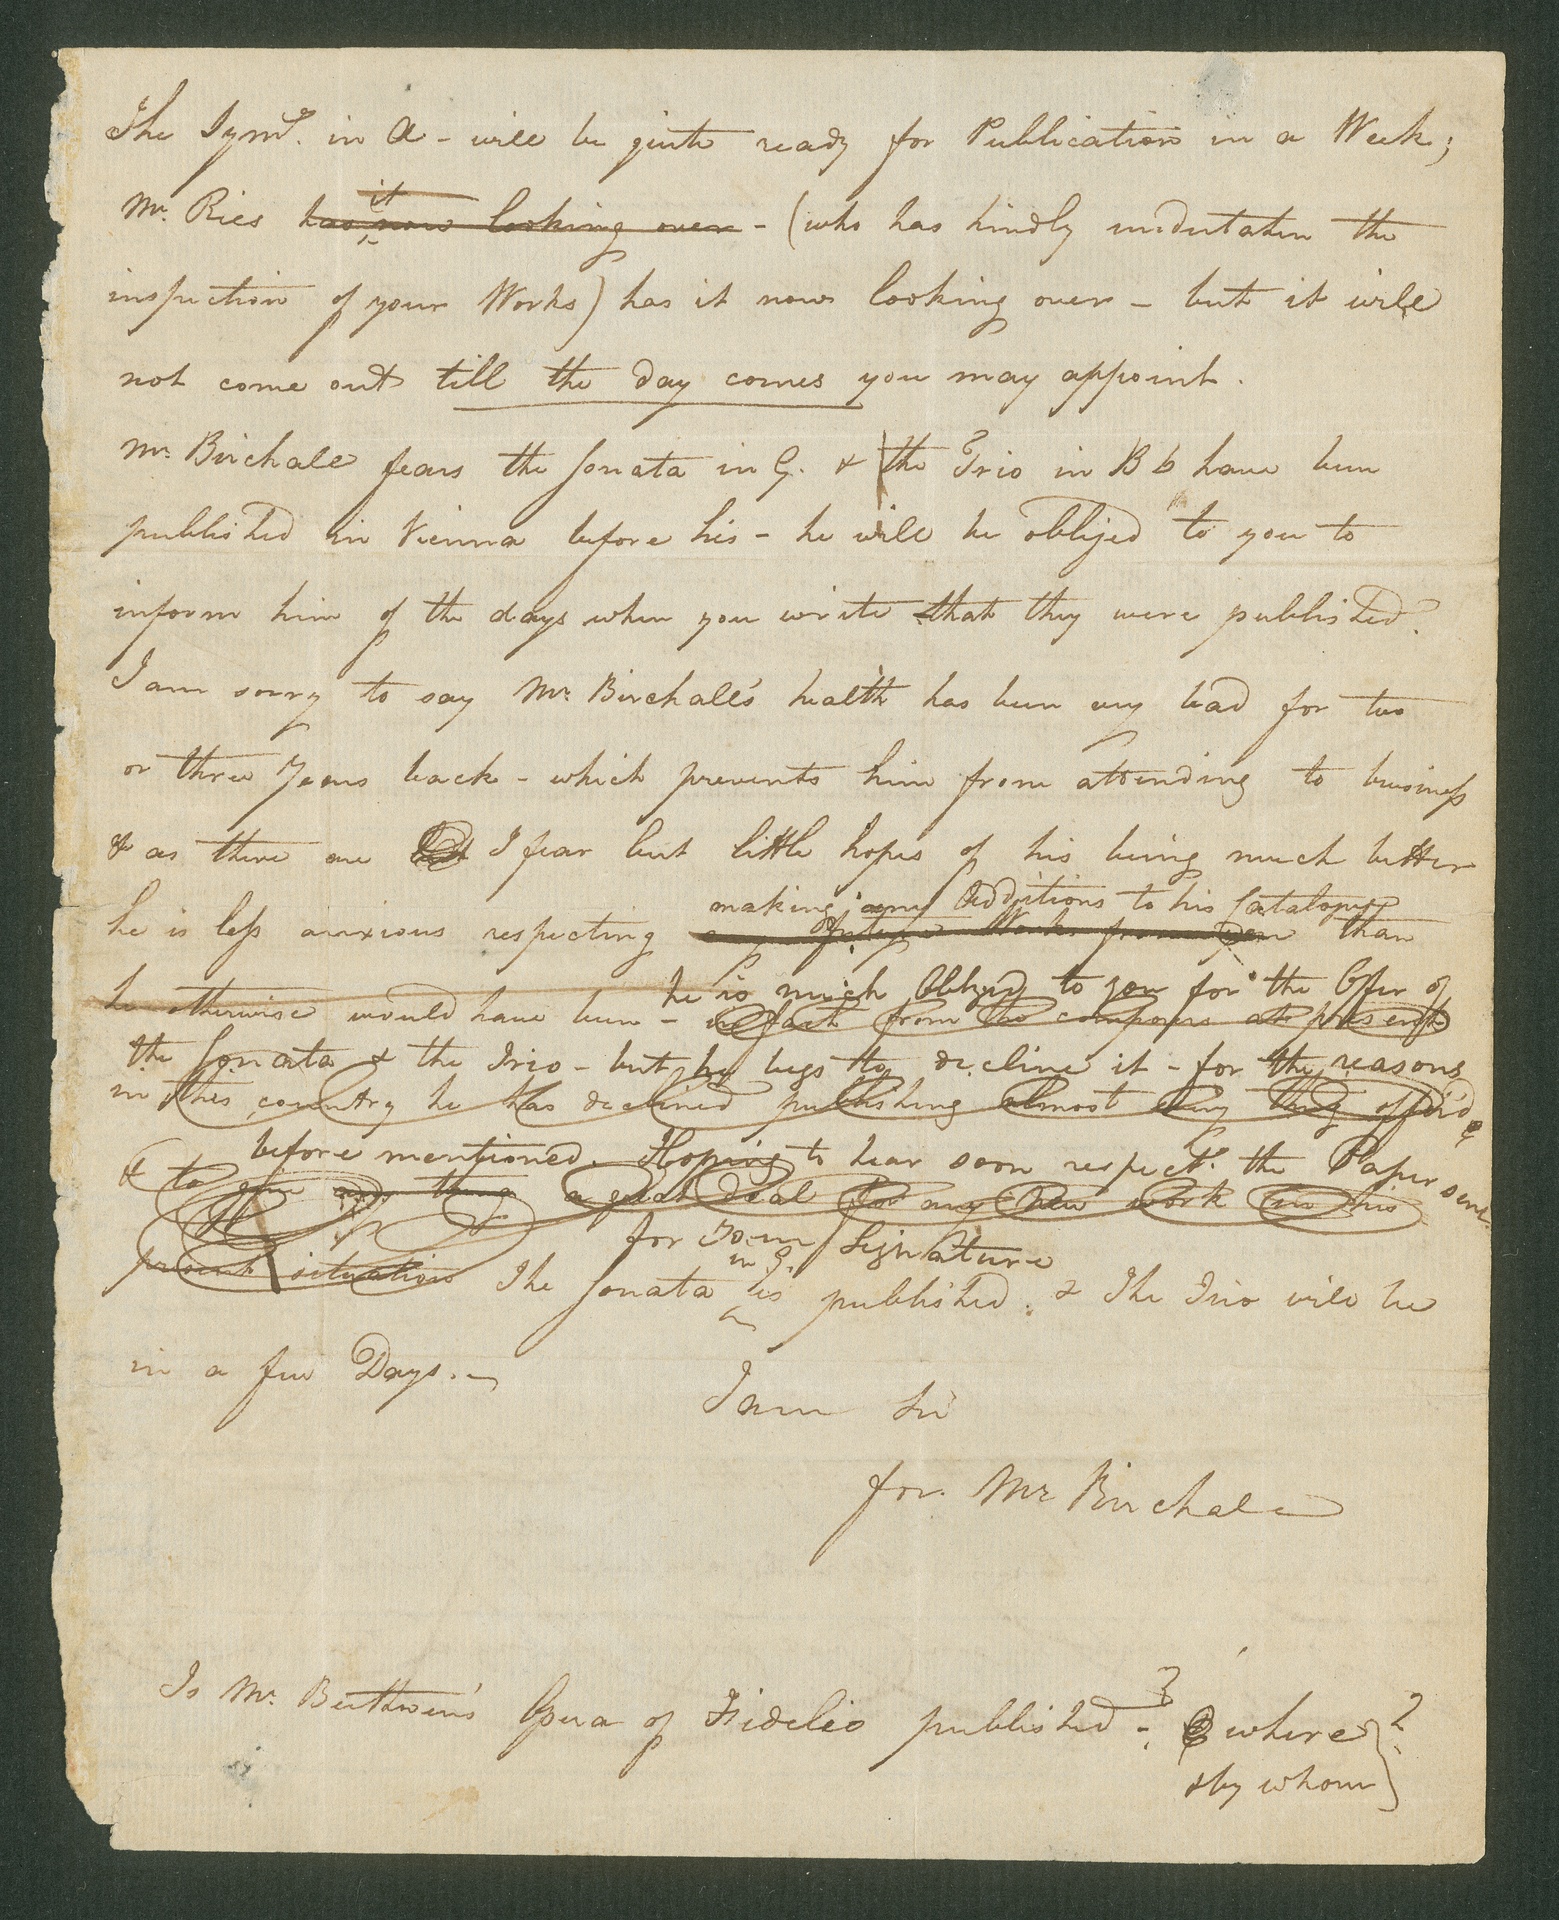 The Symy. in A - will be quite ready for Publication in a Week;
Mr. Ries has it now looking over - (who has kindly undertaken the
inspection of your Works) has it now looking over - but it will
not come out till the day comes you may appoint.
Mr. Birchall fears the Sonata in G. & the Trio in B b have been
published in Vienna before his - he will be obliged to you to
inform him of the days when you write that they were published.
I am sorry to say Mr. Birchall's health has been very bad for two
or three Years back - which prevents him from attending to business
& as there are I fear but little hopes of his being much better
making any Additions to his Catalogue
he is less anxious respecting any future Works from than
he is much Obliged to you for the Offer of
he otherwise would have been - in fact from the composers at present
the Sonata & the Trio - but he begs to decline it - for the reasons
in this country he has declined publishing almost every thing offer'd
before mentioned. Hoping to hear soon respectg. the Paper sent
& to give any thing a great deal for any new work in his
for your Signature
in G.
present situation The Sonata is published. & The Trio will be
in a few Days. -
I am Sir
for. Mr Birchall
Is Mr. Beethoven's Opera of Fidelio published - ? where ?
& by whom